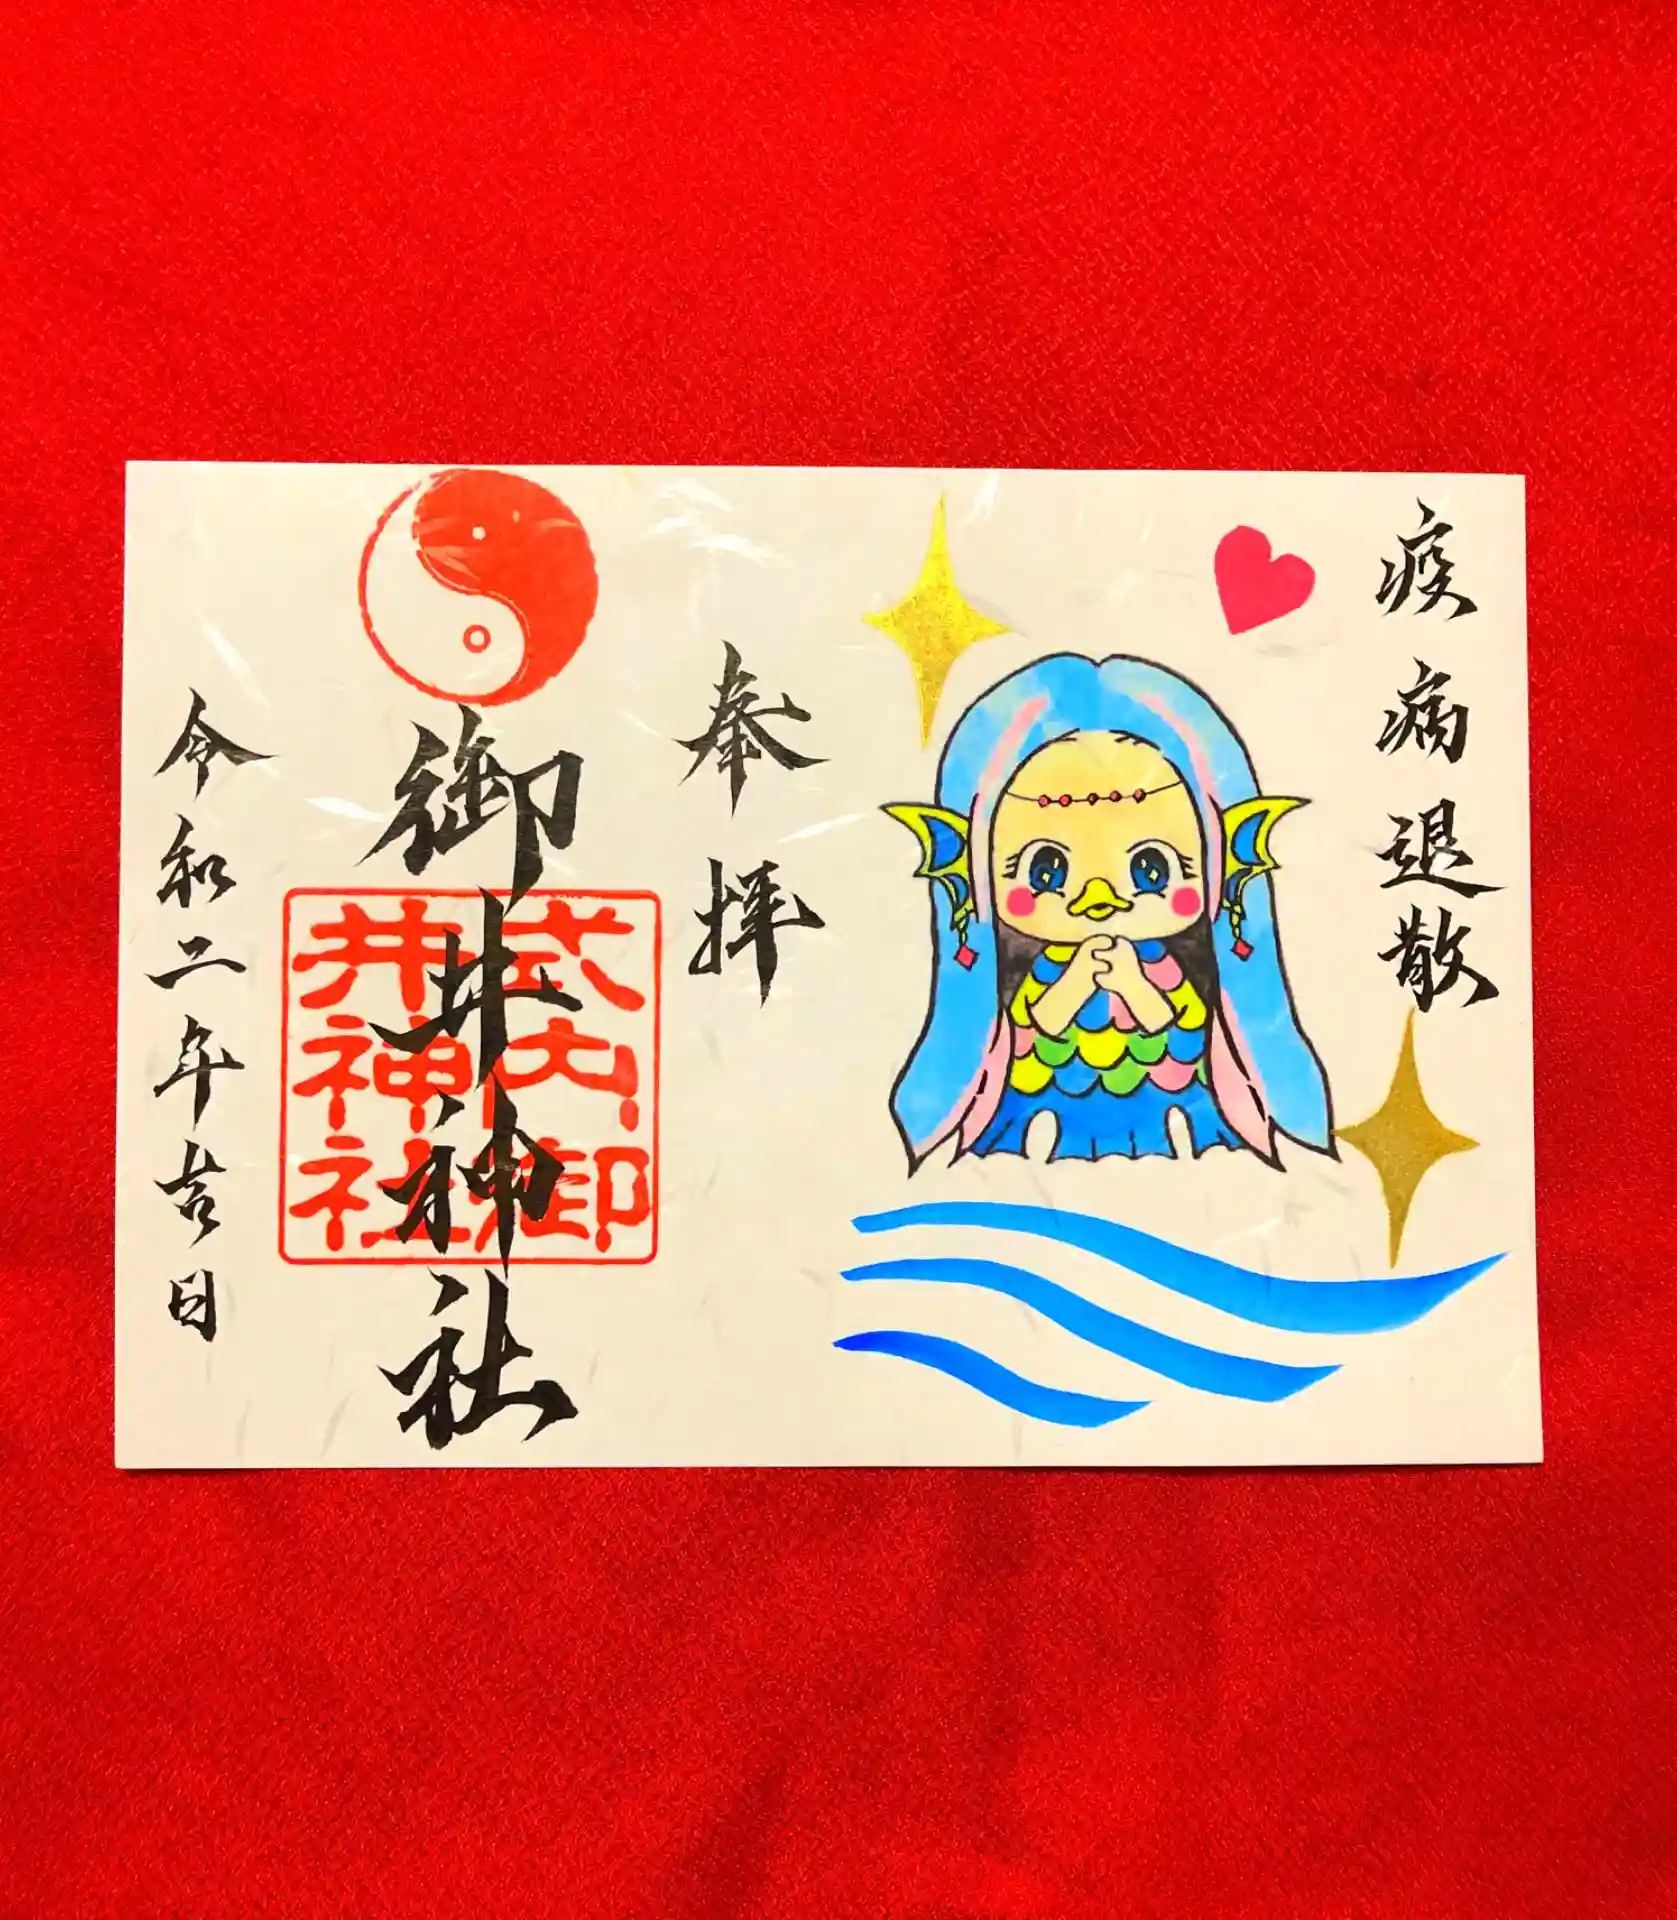 疫病退散
奉拝
御井神社
式内御
井神社
令和二年吉日